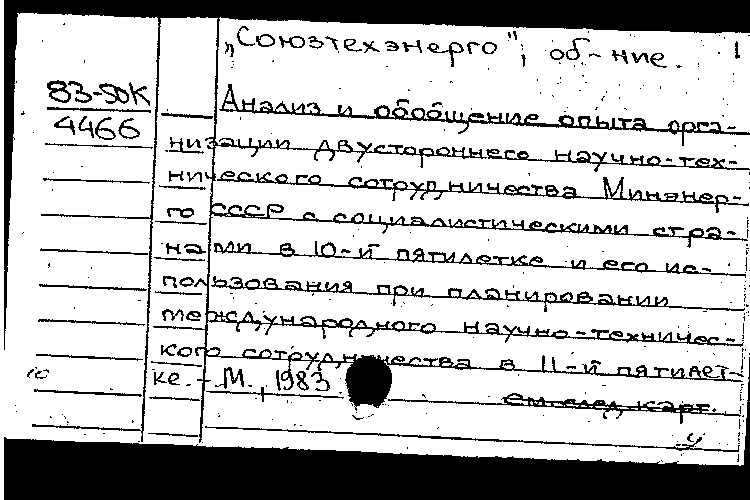 „Союзтехэнерго", об-ние. 1
83-50К
4466
Анализ и обобщение опыта орга-
низации двустороннего научно-тех-
нического сотрудничества Минэнер-
го СССР с социалистическими стра-
нами в 10-й пятилетке и его ис-
пользования при планировании
международного научно-техничес-
кого сотрудничества в 11-й пятилет-
ке. - М., 1983
см. след. карт.